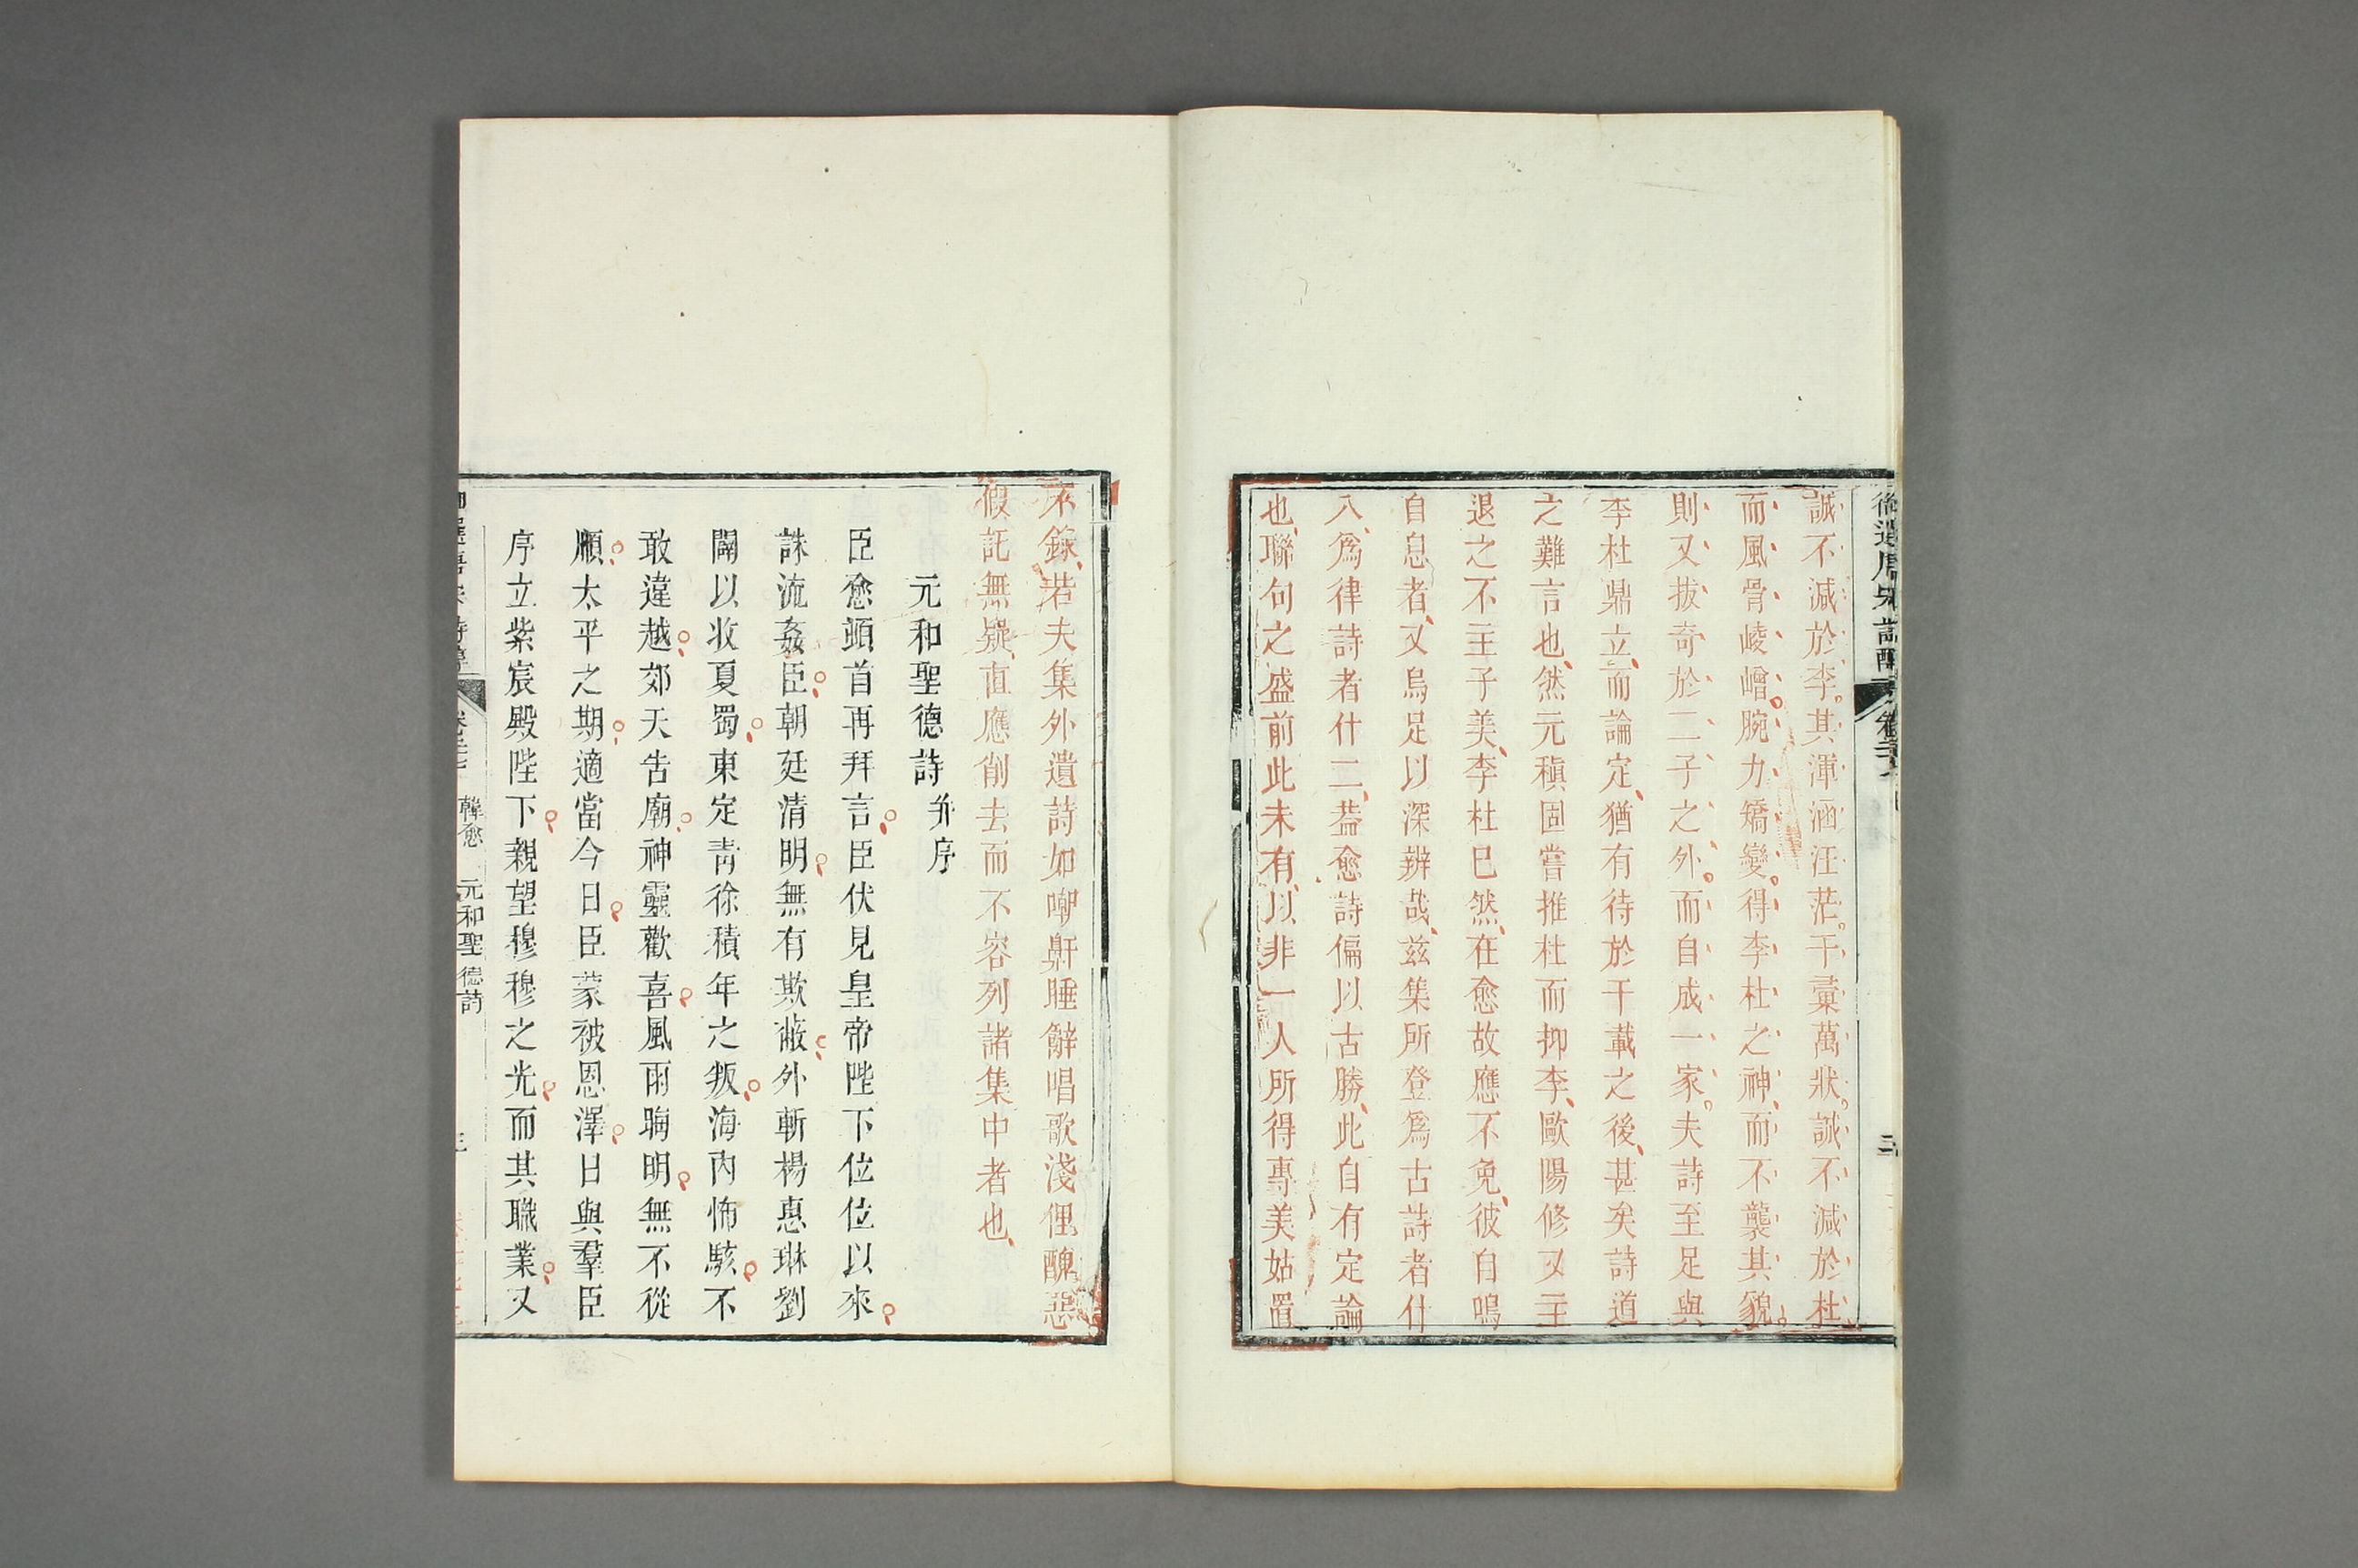 誠不減於李其渾涵汪茫千彚萬狀誠不減於杜
而風骨崚嶒腕力矯變得李杜之神而不襲其貌
則又拔奇於二子之外而自成一家夫詩至足與
李杜鼎立而論定猶有待於千載之後甚矣詩道
之難言也然元稹固嘗推杜而抑李歐陽修又主
退之不主子美李杜巳然在愈故應不免彼自鳴
自息者又烏足以深辨哉兹集所登爲古詩者什
八爲律詩者什二葢愈詩偏以古勝此自有定論
也聯句之盛前此未有以非一人所得專美姑置
不錄若夫集外遺詩如嘲鼾睡辭唱歌淺俚醜惡
假託無疑直應削去而不容列諸集中者也
元和聖德詩并序
臣愈頓首再拜言臣伏見皇帝陛下位位以來
誅流姦臣朝廷清明無有欺蔽外斬楊惠琳劉
闢以收夏蜀東定青徐積年之叛海内怖駭不
敢違越郊天告廟神靈歡喜風雨晦明無不從
順太平之期適當今日臣蒙被恩澤日與羣臣
序立紫宸殿陛下親望穆穆之光而其職業又
韓愈 元和聖德詩
三